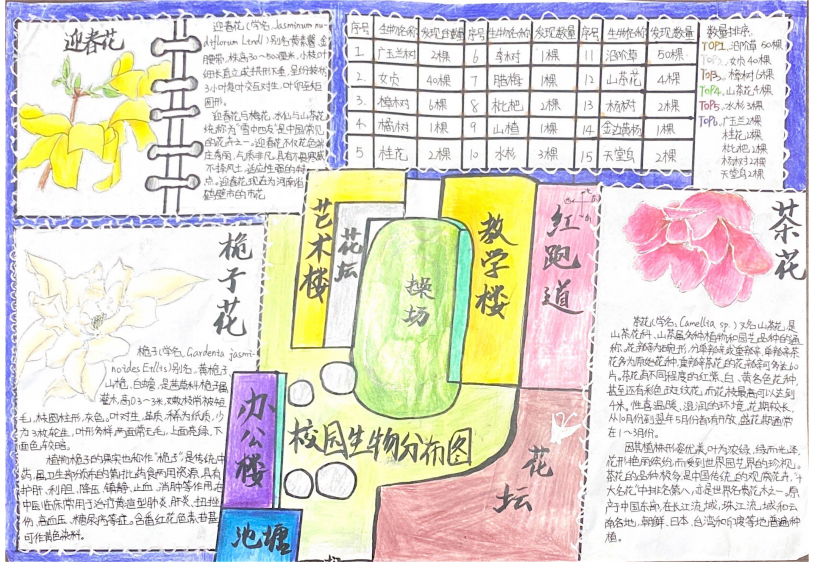 迎春花
迎春花(学名Jasminum nu-
diflorum Lindl)别名黄素馨、金
腰带,株高30~500厘米,小枝叶
细长直立或拱形下垂,呈纷披状
3小叶复叶交互对生,叶卵至矩
圆形。
迎春花与梅花、水仙与山茶花
统称为"雪中四友"是中国常见
的花卉之一。迎春花不仅花色端
庄秀丽,气质非凡,具有不畏寒威
不择风土,适应性强的特
点。迎春花现在为河南省
鹤壁市的市花
序号 生物名称 发现数量 序号 生物名称 发现数量 序号 生物名称 发现数量
1. 广玉兰树 2棵 6 李树 1棵 11 沿阶草 50棵
2. 女贞 40棵 7 腊梅 1棵 12 山茶花 4棵
3. 樟树 6棵 8 枇杷 2棵 13 杨树 2棵
4. 橘树 1棵 9 山楂 1棵 14 金边黄杨 1棵
5 桂花 2棵 10 水杉 3棵 15 天堂鸟 2棵
数量排序
TOP1、沿阶草 50棵
TOP2、女贞 40棵
TOP3、樟树6棵
TOP4、山茶花4棵
TOP5、水杉3棵
TOP6、广玉兰2棵
桂花2棵
枇杷2棵
杨树2棵
天堂鸟2棵
艺术楼
花坛
操场
教学楼
红跑道
办公楼
池塘
校园生物分布图
花坛
栀子花
栀子(学名、Gardenia jasmi-
noides Ellis)别名,黄栀子、
山栀、白蟾,是茜草科栀子属
灌木,高0.3~3米,嫩枝常被短
毛,枝圆柱形,灰色。叶对生,革质,稀为纸质,少
为3枚轮生,叶形多样,两面常无毛,上面亮绿,下
面色较暗。
植物栀子的果实也称作"栀子"是传统中
药,属卫生部颁布的第1批药食两用资源,具有
护肝、利胆、降压、镇静、止血、消肿等作用,在
中医临床常用于治疗黄疸型肝炎、扭挫
伤、高血压、糖尿病等症。含番红花色素苷基
可作黄色染料。
茶花
茶花(学名,Camellia sp.)又名山茶花,是
山茶花科、山茶属多种植物和园艺品种的通
称。花瓣为碗形,分单瓣或重瓣,单瓣茶
花多为原始花种,重瓣茶花的花瓣可多达60
片。茶花有不同程度的红、紫、白、黄各色花种,
甚至还有彩色斑纹花,而花枝最高可以达到
4米。性喜温暖、湿润的环境,花期较长,
从10月份到翌年5月份都有开放,盛花期通常
在1~3月份。
因其植株形姿优美,叶为浓绿,绿而光泽,
花形艳丽缤纷,而受到世界园艺界的珍视。
茶花的品种极多,是中国传统的观赏花卉,"十
大名花"中排名第八,亦是世界名贵花木之一。原
产于中国东部,在长江流域、珠江流域和云
南各地,朝鲜、日本、台湾和印度等地普遍种
植。